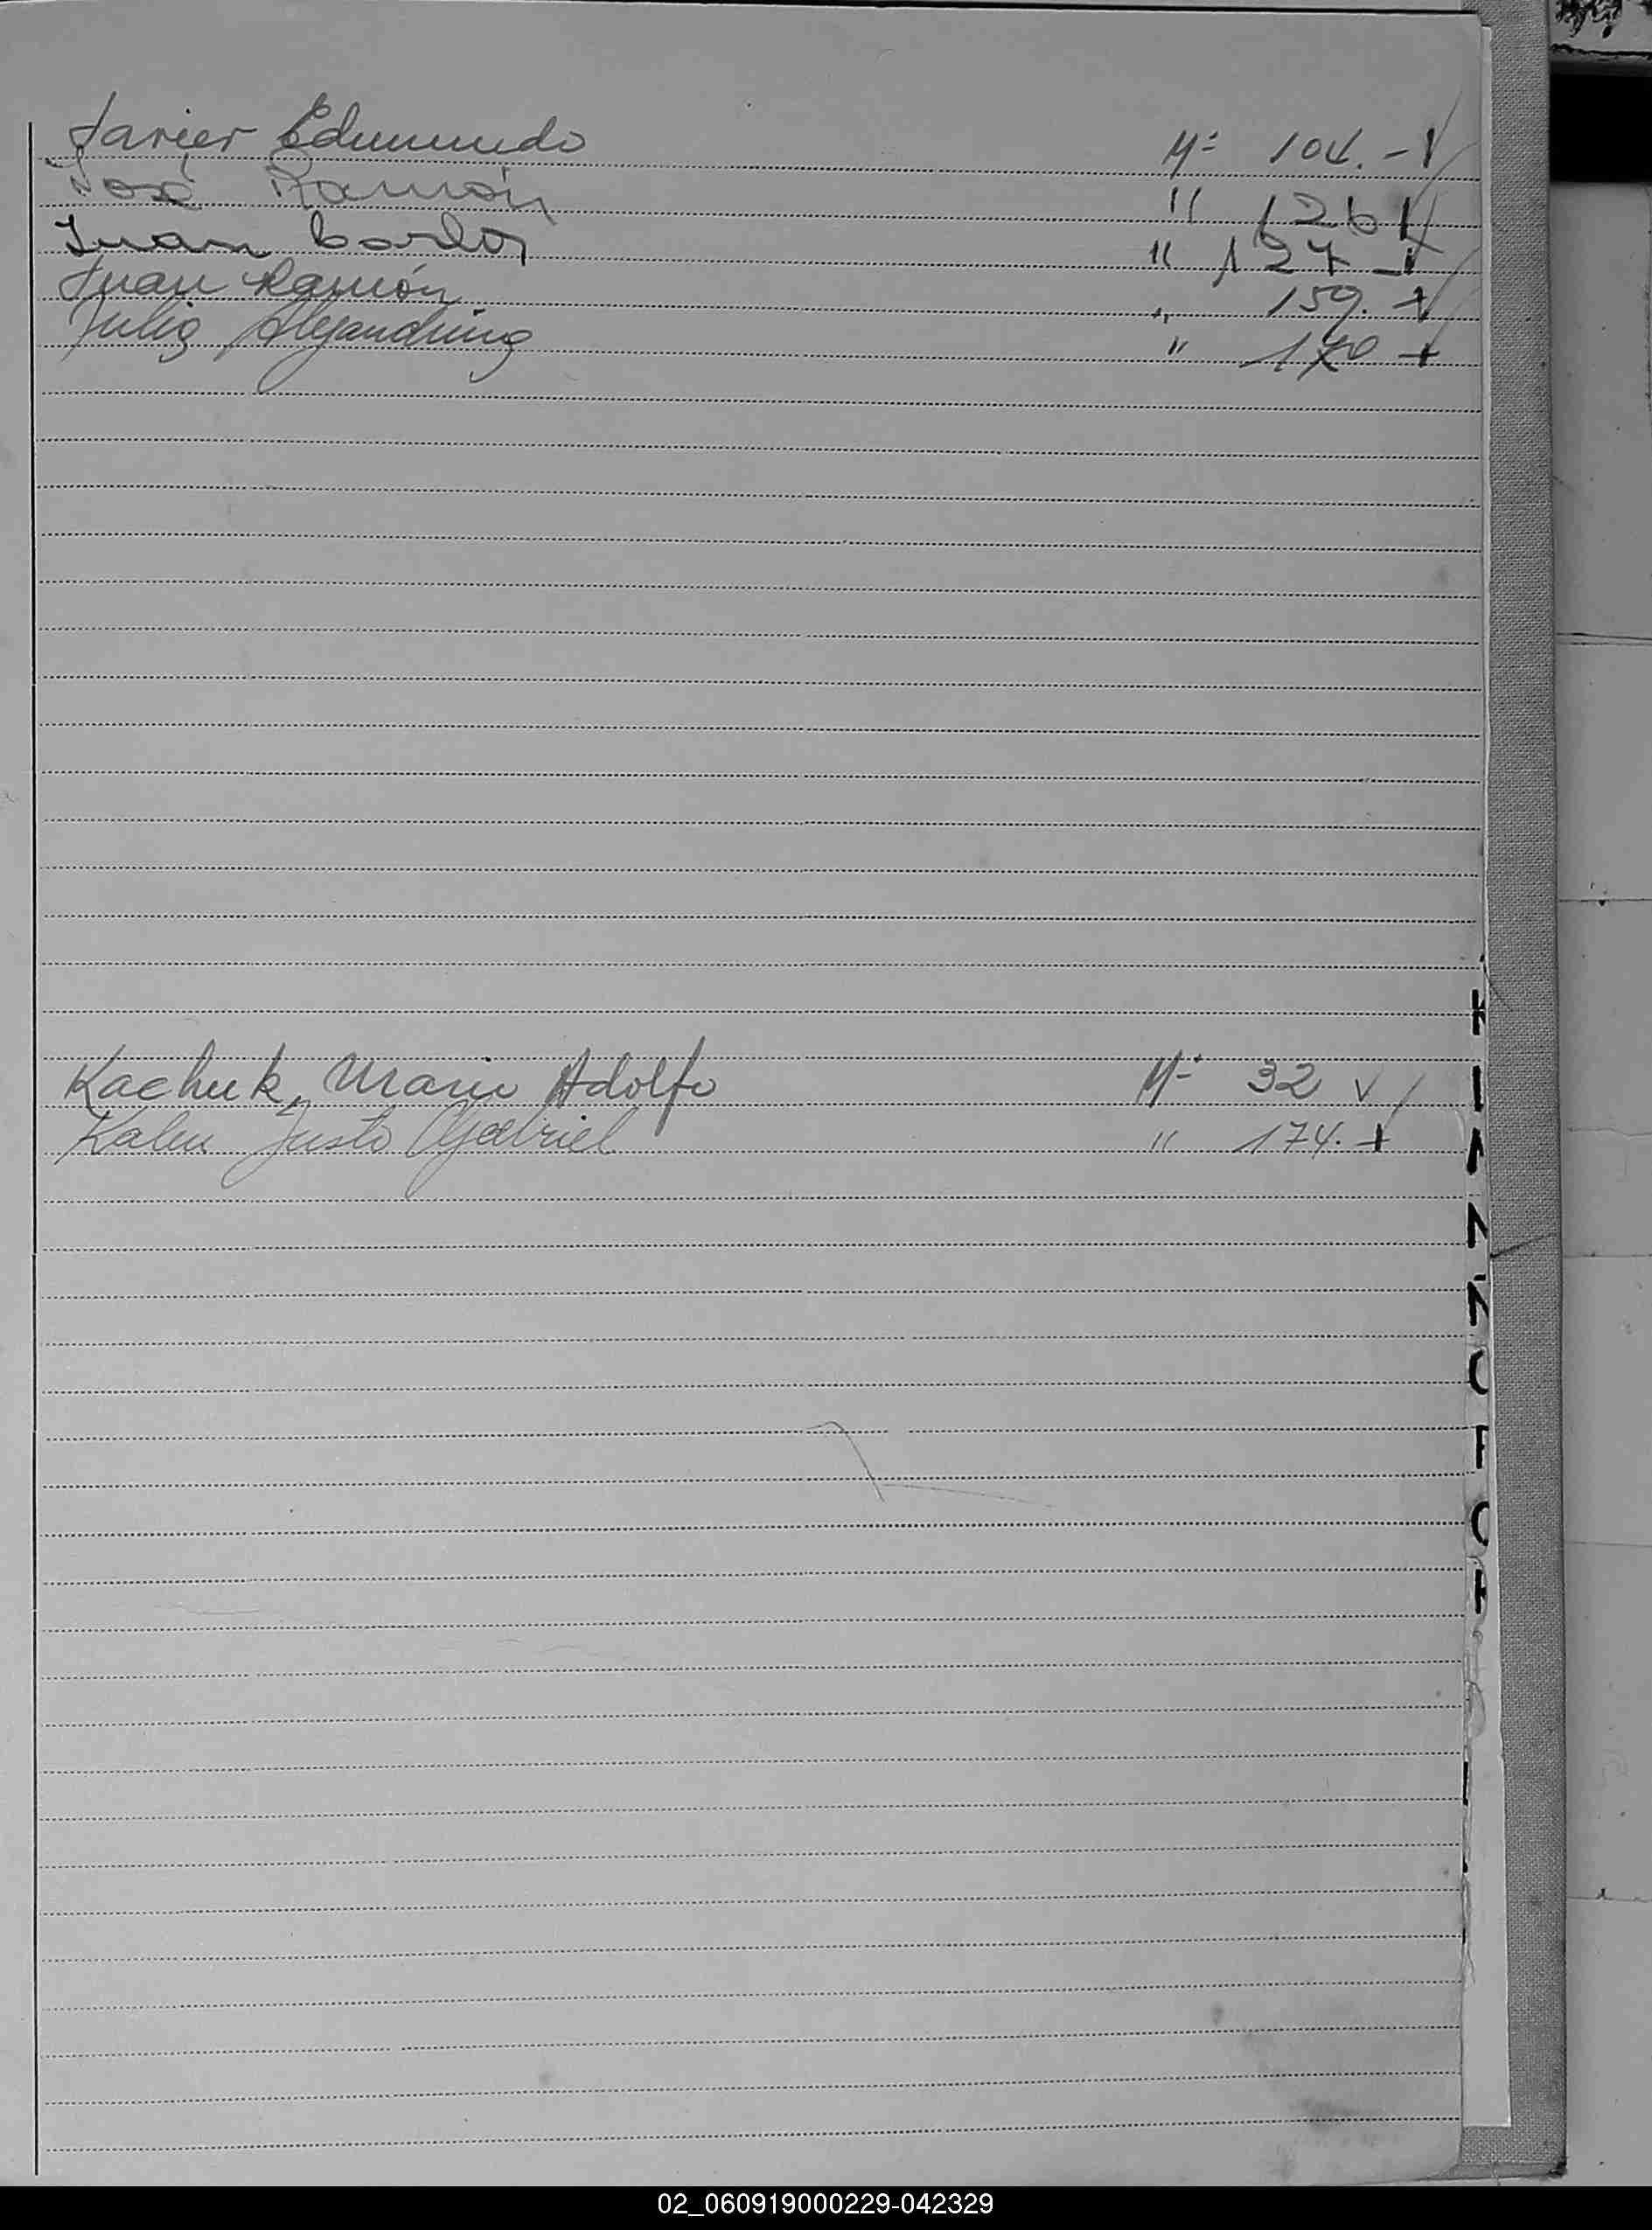 Javier Edmundo Nº 104. -
José Ramón " 126
Juan Carlos " 127 -
Juan Ramón " 159. +
Julia Alejandrina " 170 +
Kachuk, Mario Adolfo Nº 32 v
Kalen Justo Gabriel " 174. +
02_060919000229-042329